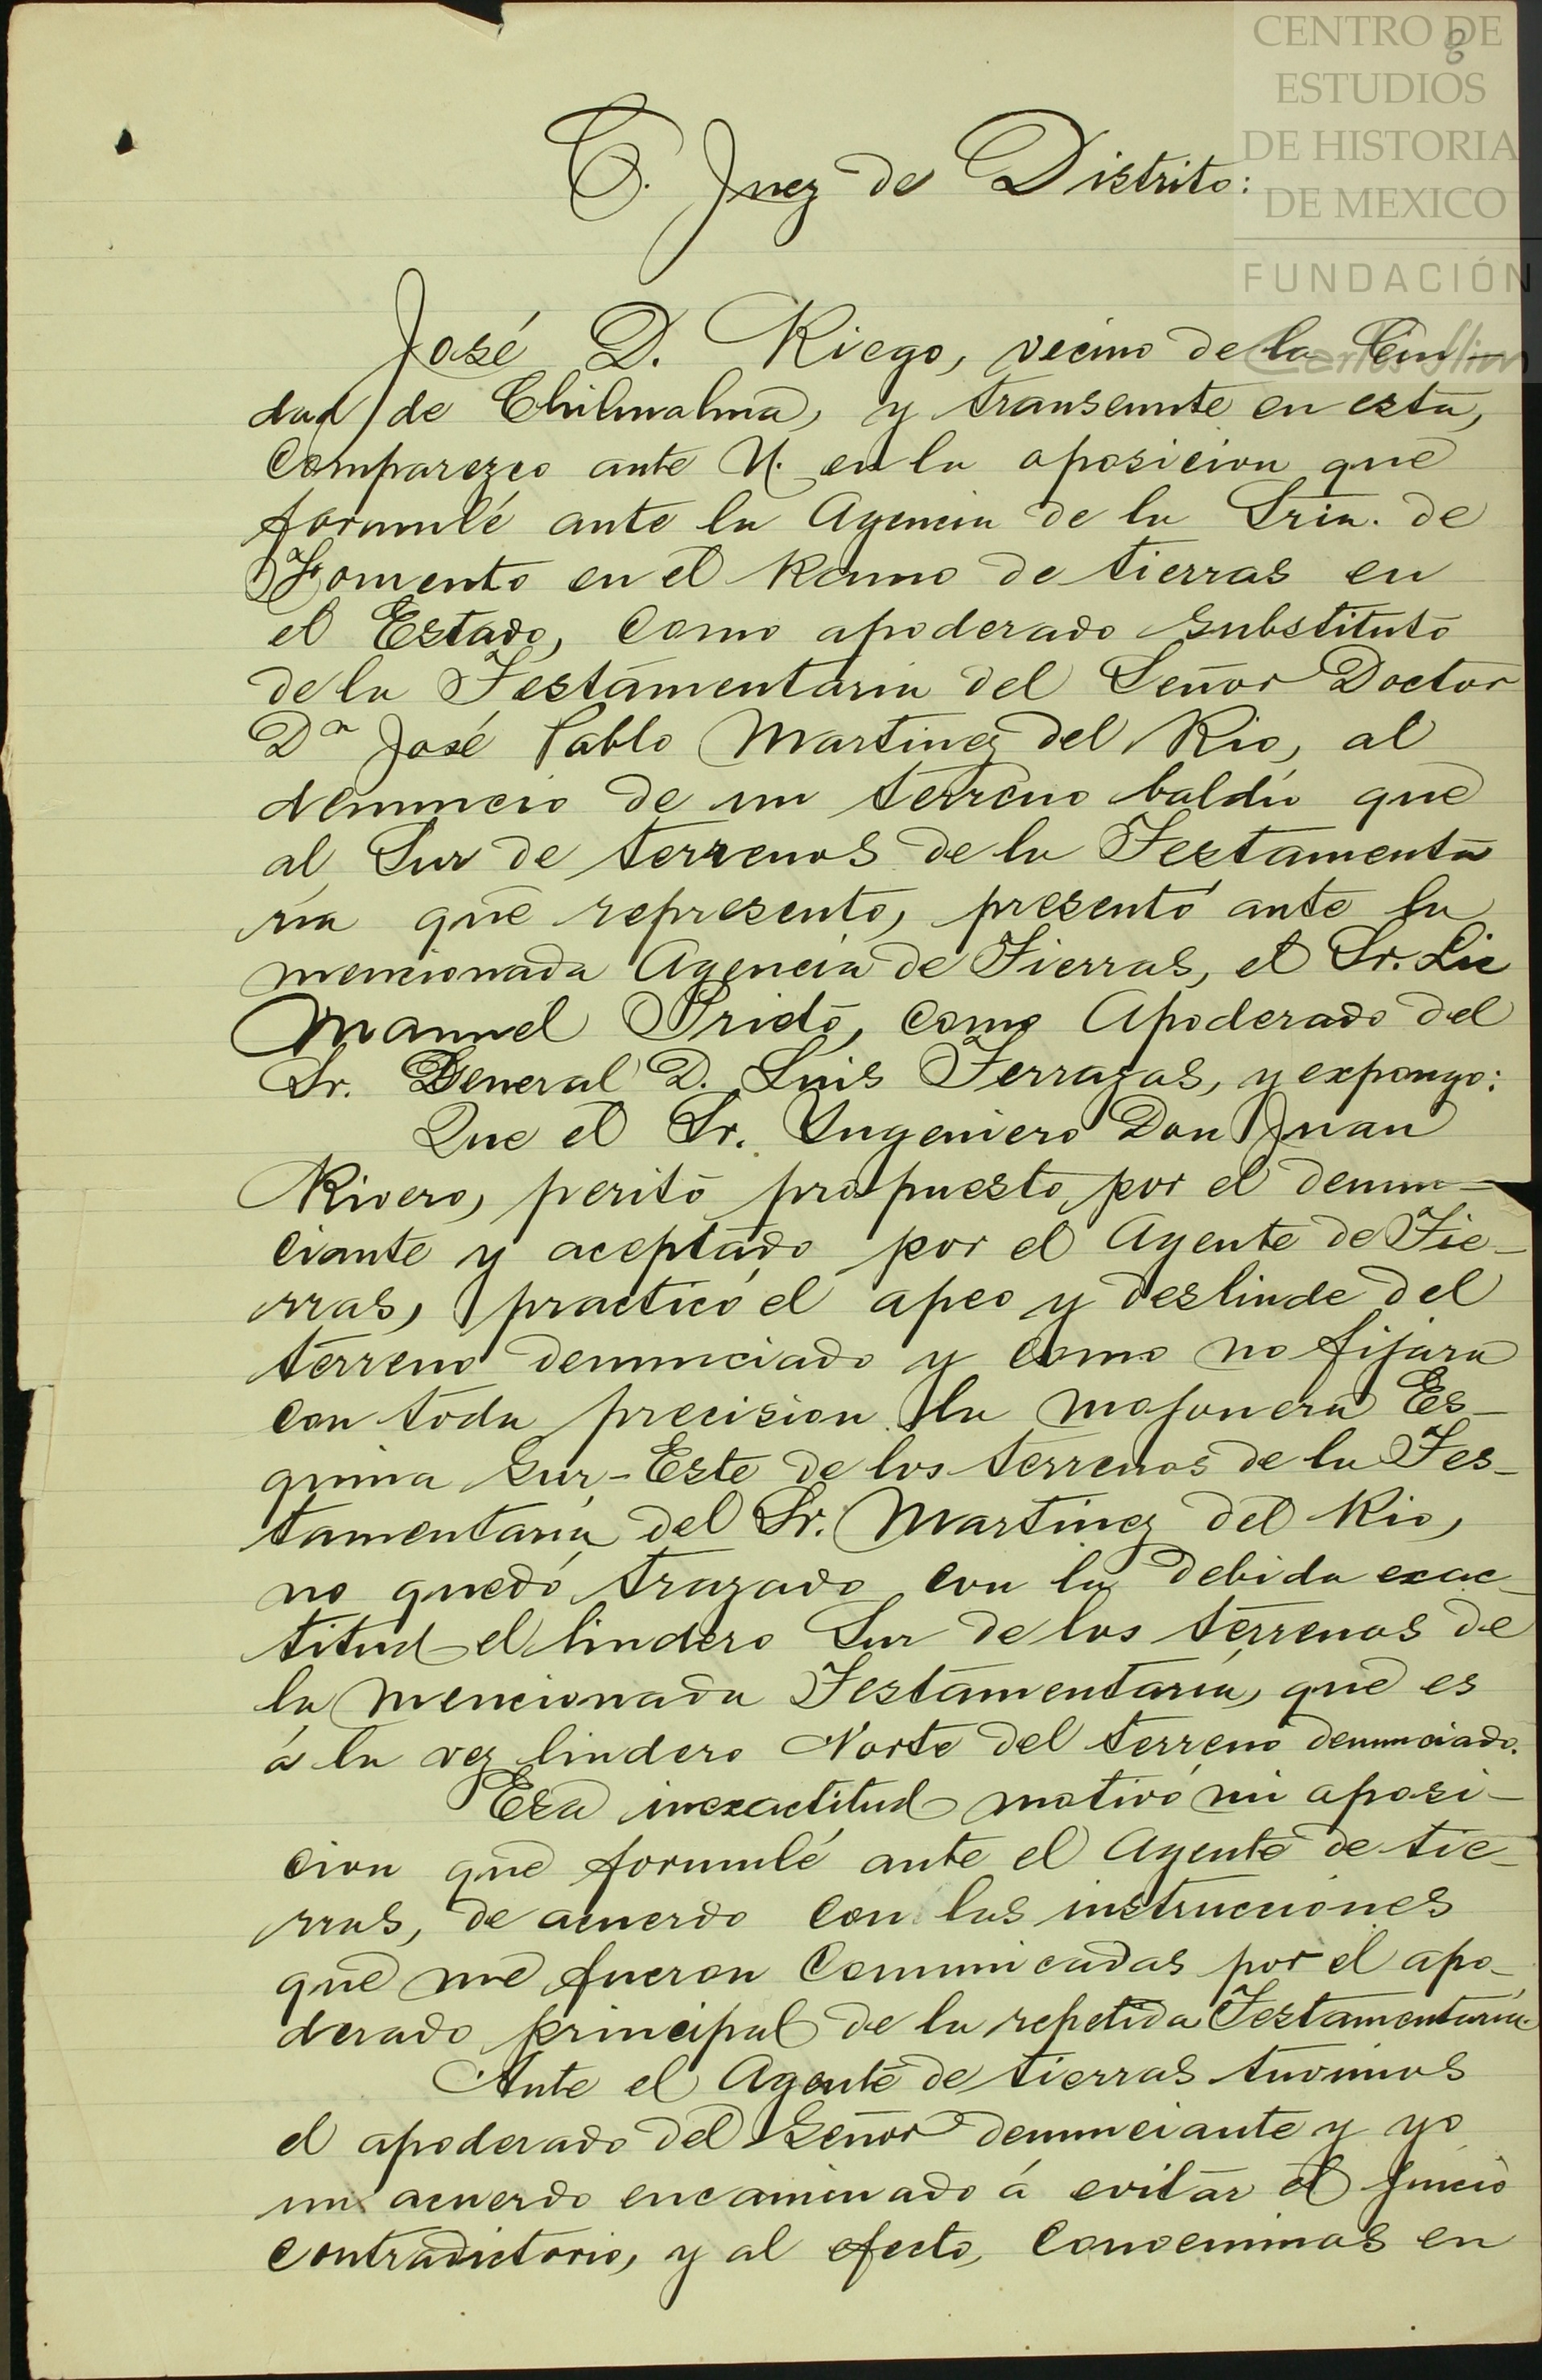 CENTRO DE
ESTUDIOS
DE HISTORIA
DE MEXICO
FUNDACIÓN
Carlos Slim
8
C. Juez de Distrito:
José D. Riego, vecino de la Ciu-
dad de Chihuahua, y transeunte en esta,
comparezco ante U. en la oposicion que
formulé ante la Agencia de la Sría. de
Fomento en el Ramo de tierras en
el Estado, como apoderado substituto
de la Testamentaría del Señor Doctor
Dn José Pablo Martinez del Rio, al
denuncio de un terreno baldío que
al Sur de terrenos de la Testamenta
ría que represento, presentó ante la
mencionada Agencia de Tierras, el Sr. Lic
Manuel Prieto, como Apoderado del
Sr. General D. Luis Terrazas, y expongo:
Que el Sr. Yngeniero Don Juan
Rivero, perito propuesto por el denun-
ciante y aceptado por el Agente de Tie-
rras, practicó el apeo y deslinde del
terreno denunciado y como no fijara
con toda precision la mojonera Es-
quina Sur-Este de los terrenos de la Tes-
tamentaría del Sr. Martinez del Rio,
no quedó trazado con la debida exac-
titud el lindero Sur de los terrenos de
la mencionada Testamentaría, que es
á la vez lindero Norte del terreno denunciado.
Esa inexactitud motivó mi oposi-
cion que formulé ante el Agente de tie-
rras, de acuerdo con las instrucciones
que me fueron comunicadas por el apo-
derado principal de la repetida Testamentaría.
Ante el Agente de tierras tuvimos
el apoderado del Señor denunciante y yo
un acuerdo encaminado á evitar el juicio
contradictorio, y al efecto, convenimos en